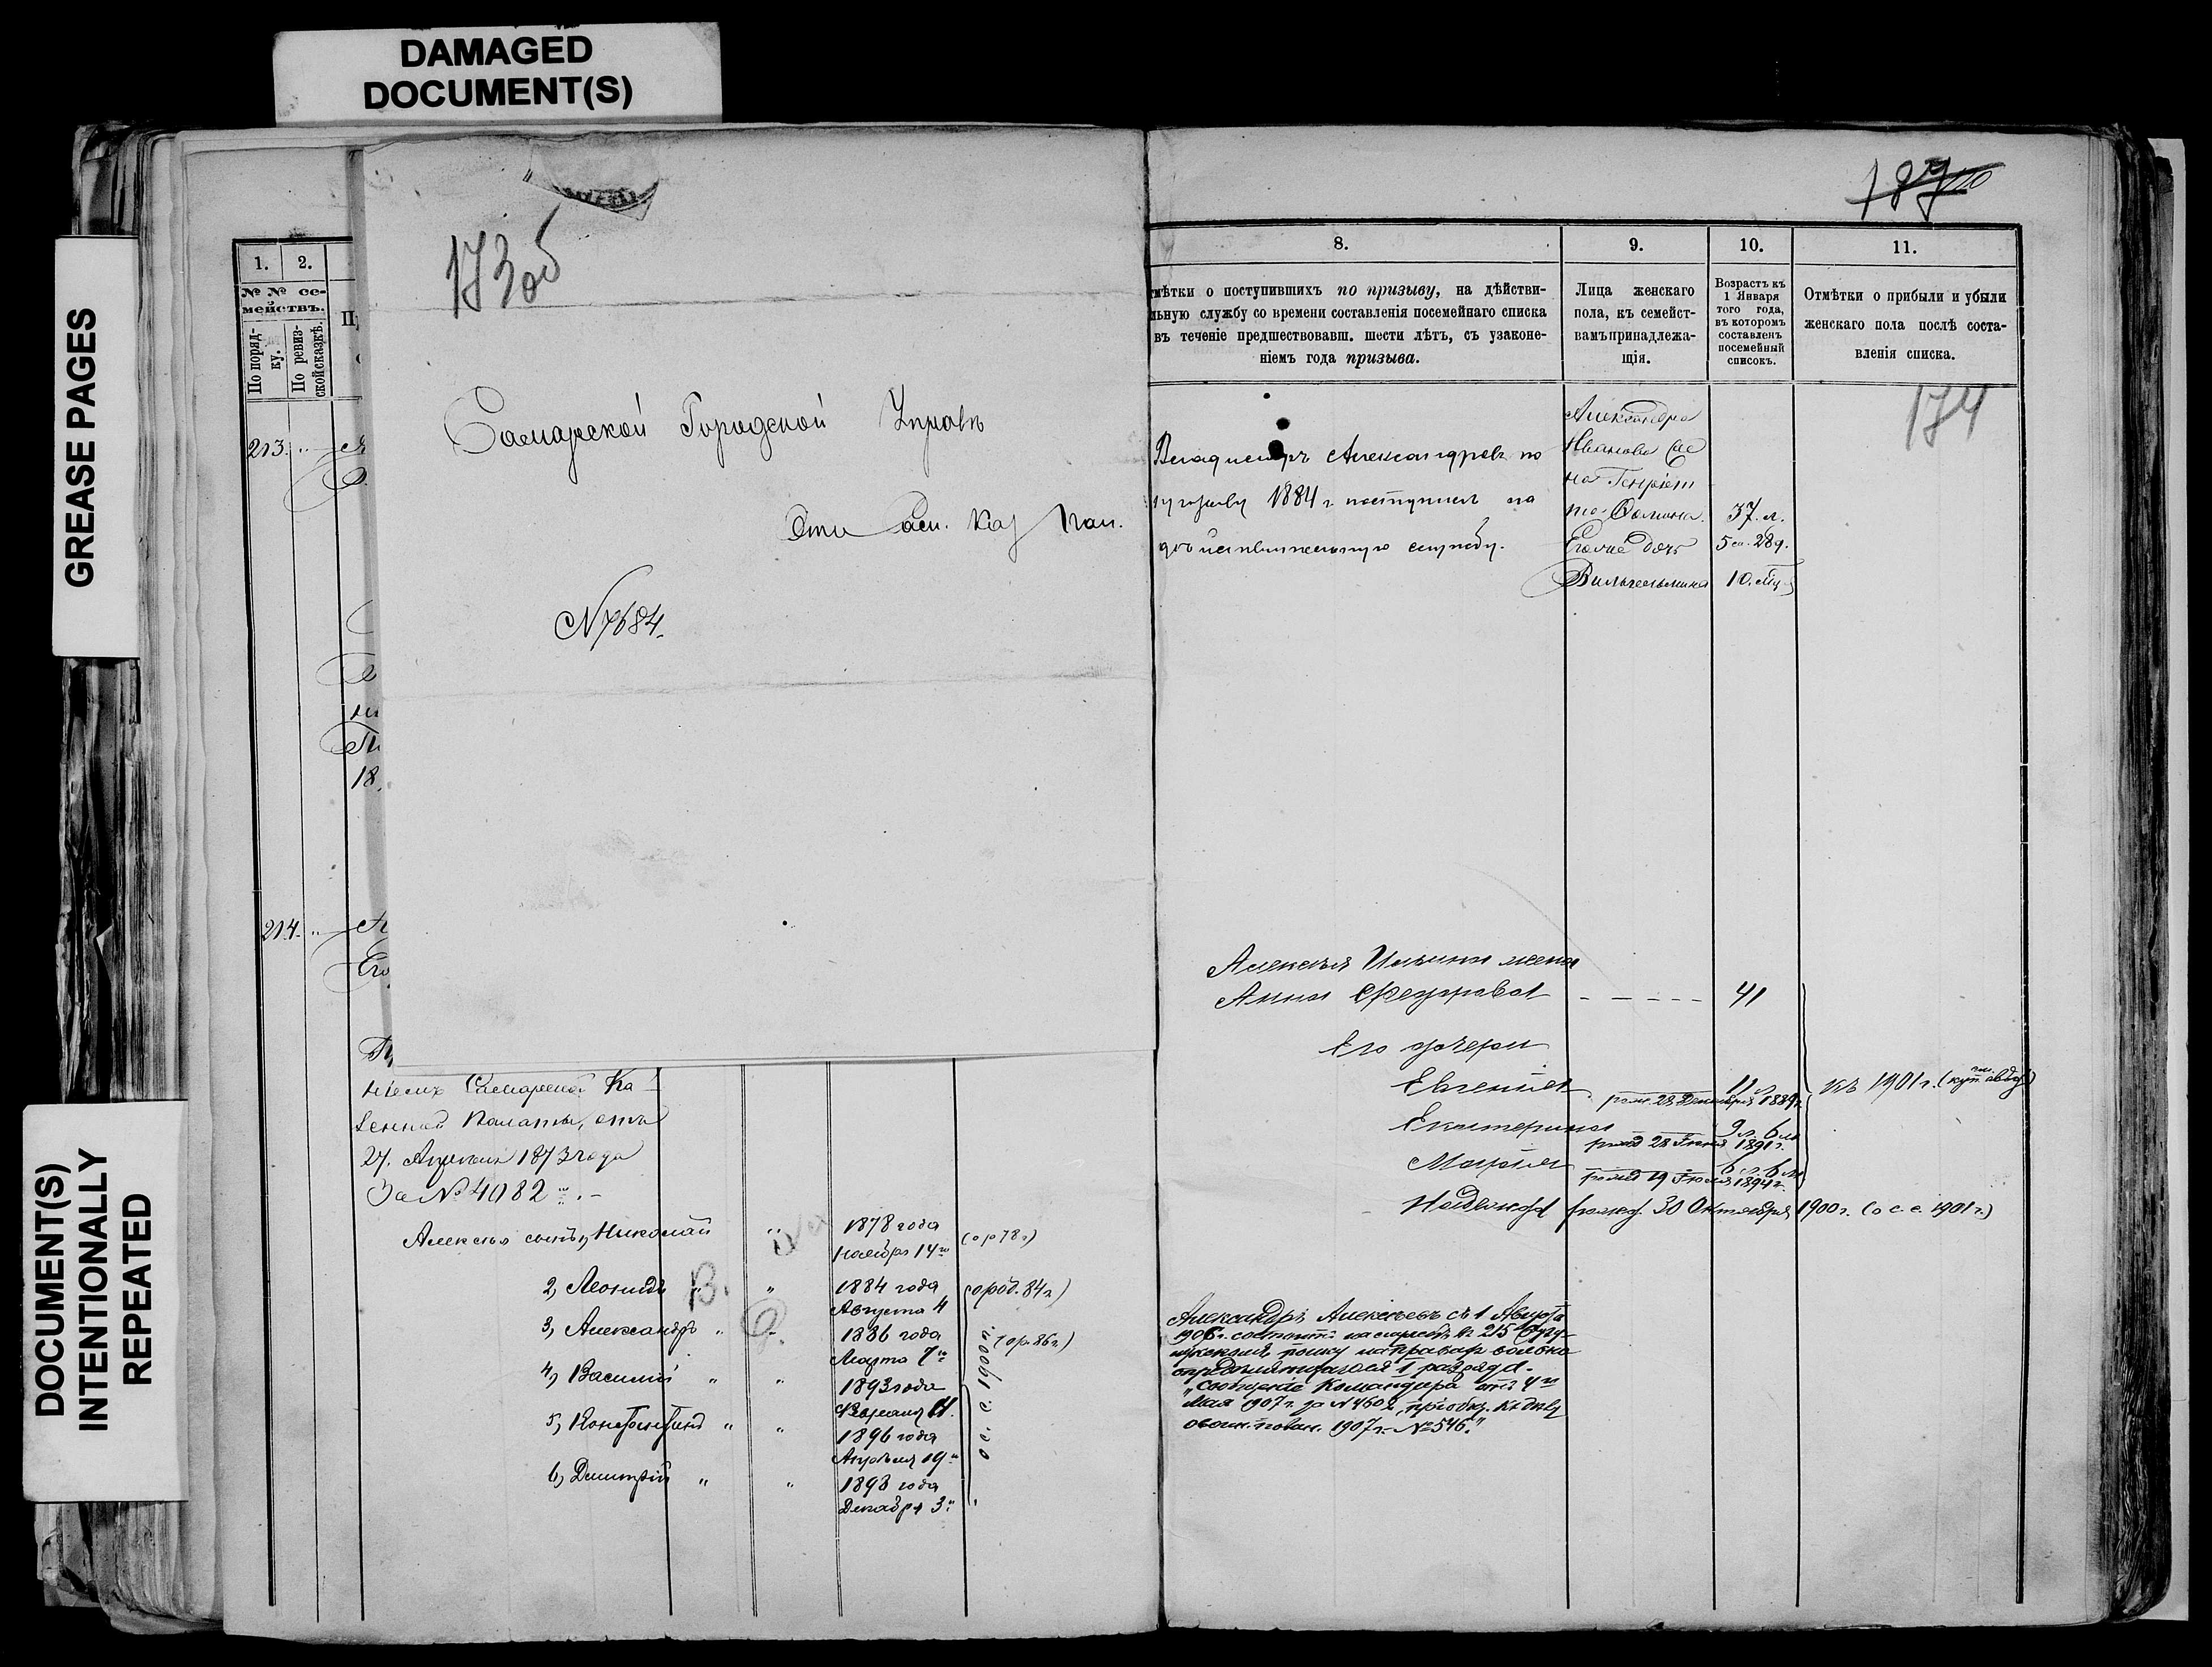 DAMAGED
DOCUMENT(S)
GREASE PAGES
DOCUMENT(S)
INTENTIONALLY
REPEATED
1. 2.
№ № се-
мействъ.
По поряд-
ку.
По ревиз-
ской сказкѣ.
213.
18
214.
173 об
Самарской Городской Управѣ
Отъ Сам. Каз Пал.
N 7684.
ніемъ Самарской Ка-
зенной Палаты, отъ
27. Апрѣля 1873 года
За № 4082
Алексѣя сынъ 1, Николай " 1878 года
Ноября 14го
(о р 78 г)
2, Леонидъ " " 1884 года
Августа 4
(о род. 84 г)
3, Александръ " " 1886 года
Марта 7го
(о р. 86 г)
4, Василій " " 1893 года
5, Константинъ " " 1896 года
Апрѣля 19го
6, Димитрій " " 1898 года
Декабря 3го
о с. с. 1900 г.
187
174
8. 9. 10. 11.
мѣтки о поступившихъ по призыву, на дѣйстви-
льную службу со времени составленія посемейнаго списка
въ теченіе предшествовавш. шести лѣтъ, съ узаконе-
ніемъ года призыва.
Лица женскаго
пола, къ семейст-
вамъ принадлежа-
щія.
Возрастъ къ
1 Января
того года,
въ которомъ
составленъ
посемейный
списокъ.
Отмѣтки о прибыли и убыли
женскаго пола послѣ соста-
вленія списка.
Владиміръ Александровъ по
призыву 1884 г. поступилъ на
дѣйствительную службу.
Александра
Иванова же
на Генріет
та Фомина. 37. л.
Его же дочь 5 м. 28 д.
Вильгельмина 10. лѣт.
Алексѣя Ильина жена
Анна Федорова - - - - - 41
Его дочери
Евгенія 11 л.
рожд. 28 Декабря 1889 г.
Екатерина 9 л. 6 м.
рожд 28 Іюня 1891 г.
Марія 6 л. 6 м.
рожд 19 Іюля 1894 г.
къ 1901 г.
Надежда рожд. 30 Октября 1900 г. (о с. с. 1901 г.)
Александръ Алексѣевъ съ 1 Августа
1906 г. состоитъ на службѣ въ 215 Бузу-
лукскомъ полку на правахъ вольно
опредѣляющагося 1 разряда.
"Сообщеніе Командира отъ 4го
Мая 1907 г. за N 4602, пріобщ. къ дѣлу
о воин. повин. 1907 г. № 546."